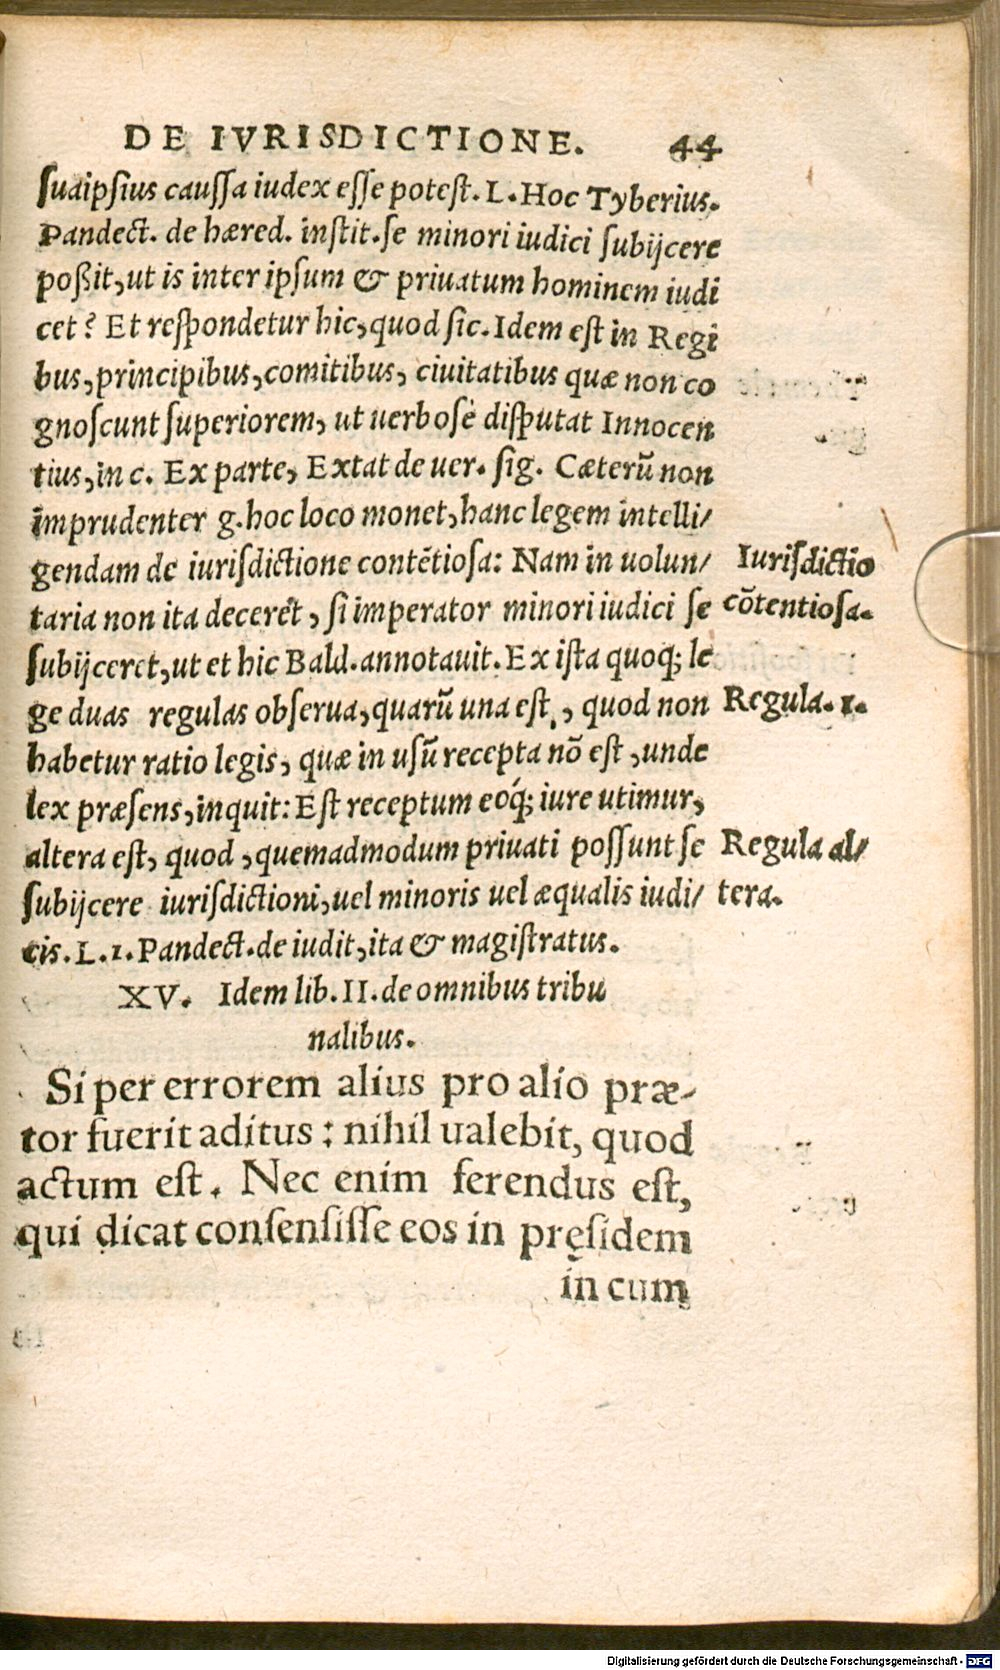 DE IVRISDICTIONE. 44
suaipsius caussa iudex esse potest. L. Hoc Tyberius.
Pandect. de hæred. instit. se minori iudici subijcere
poßit, ut is inter ipsum & priuatum hominem iudi
cet? Et respondetur hic, quod sic. Idem est in Regi
bus, principibus, comitibus, ciuitatibus quæ non co
gnoscunt superiorem, ut uerbosè disputat Innocen
tius, in c. Ex parte, Extat de uer. sig. Cæterũ non
imprudenter g. hoc loco monet, hanc legem intelli/
gendam de iurisdictione contẽtiosa: Nam in uolun/
Iurisdictio
taria non ita deceret, si imperator minori iudici se
cõtentiosa.
subijceret, ut et hic Bald. annotauit. Ex ista quoq; le
ge duas regulas obserua, quarũ una est, quod non
Regula. 1.
habetur ratio legis, quæ in usũ recepta nõ est, unde
lex præsens, inquit: Est receptum eoq́; iure utimur,
altera est, quod, quemadmodum priuati possunt se
Regula al/
subijcere iurisdictioni, uel minoris uel æqualis iudi/
tera.
cis. L. 1. Pandect. de iudit, ita & magistratus.
XV. Idem lib. II. de omnibus tribu
nalibus.
Si per errorem alius pro alio præ-
tor fuerit aditus: nihil ualebit, quod
actum est. Nec enim ferendus est,
qui dicat consensisse eos in pręsidem
in cum
Digitalisierung gefördert durch die Deutsche Forschungsgemeinschaft - DFG